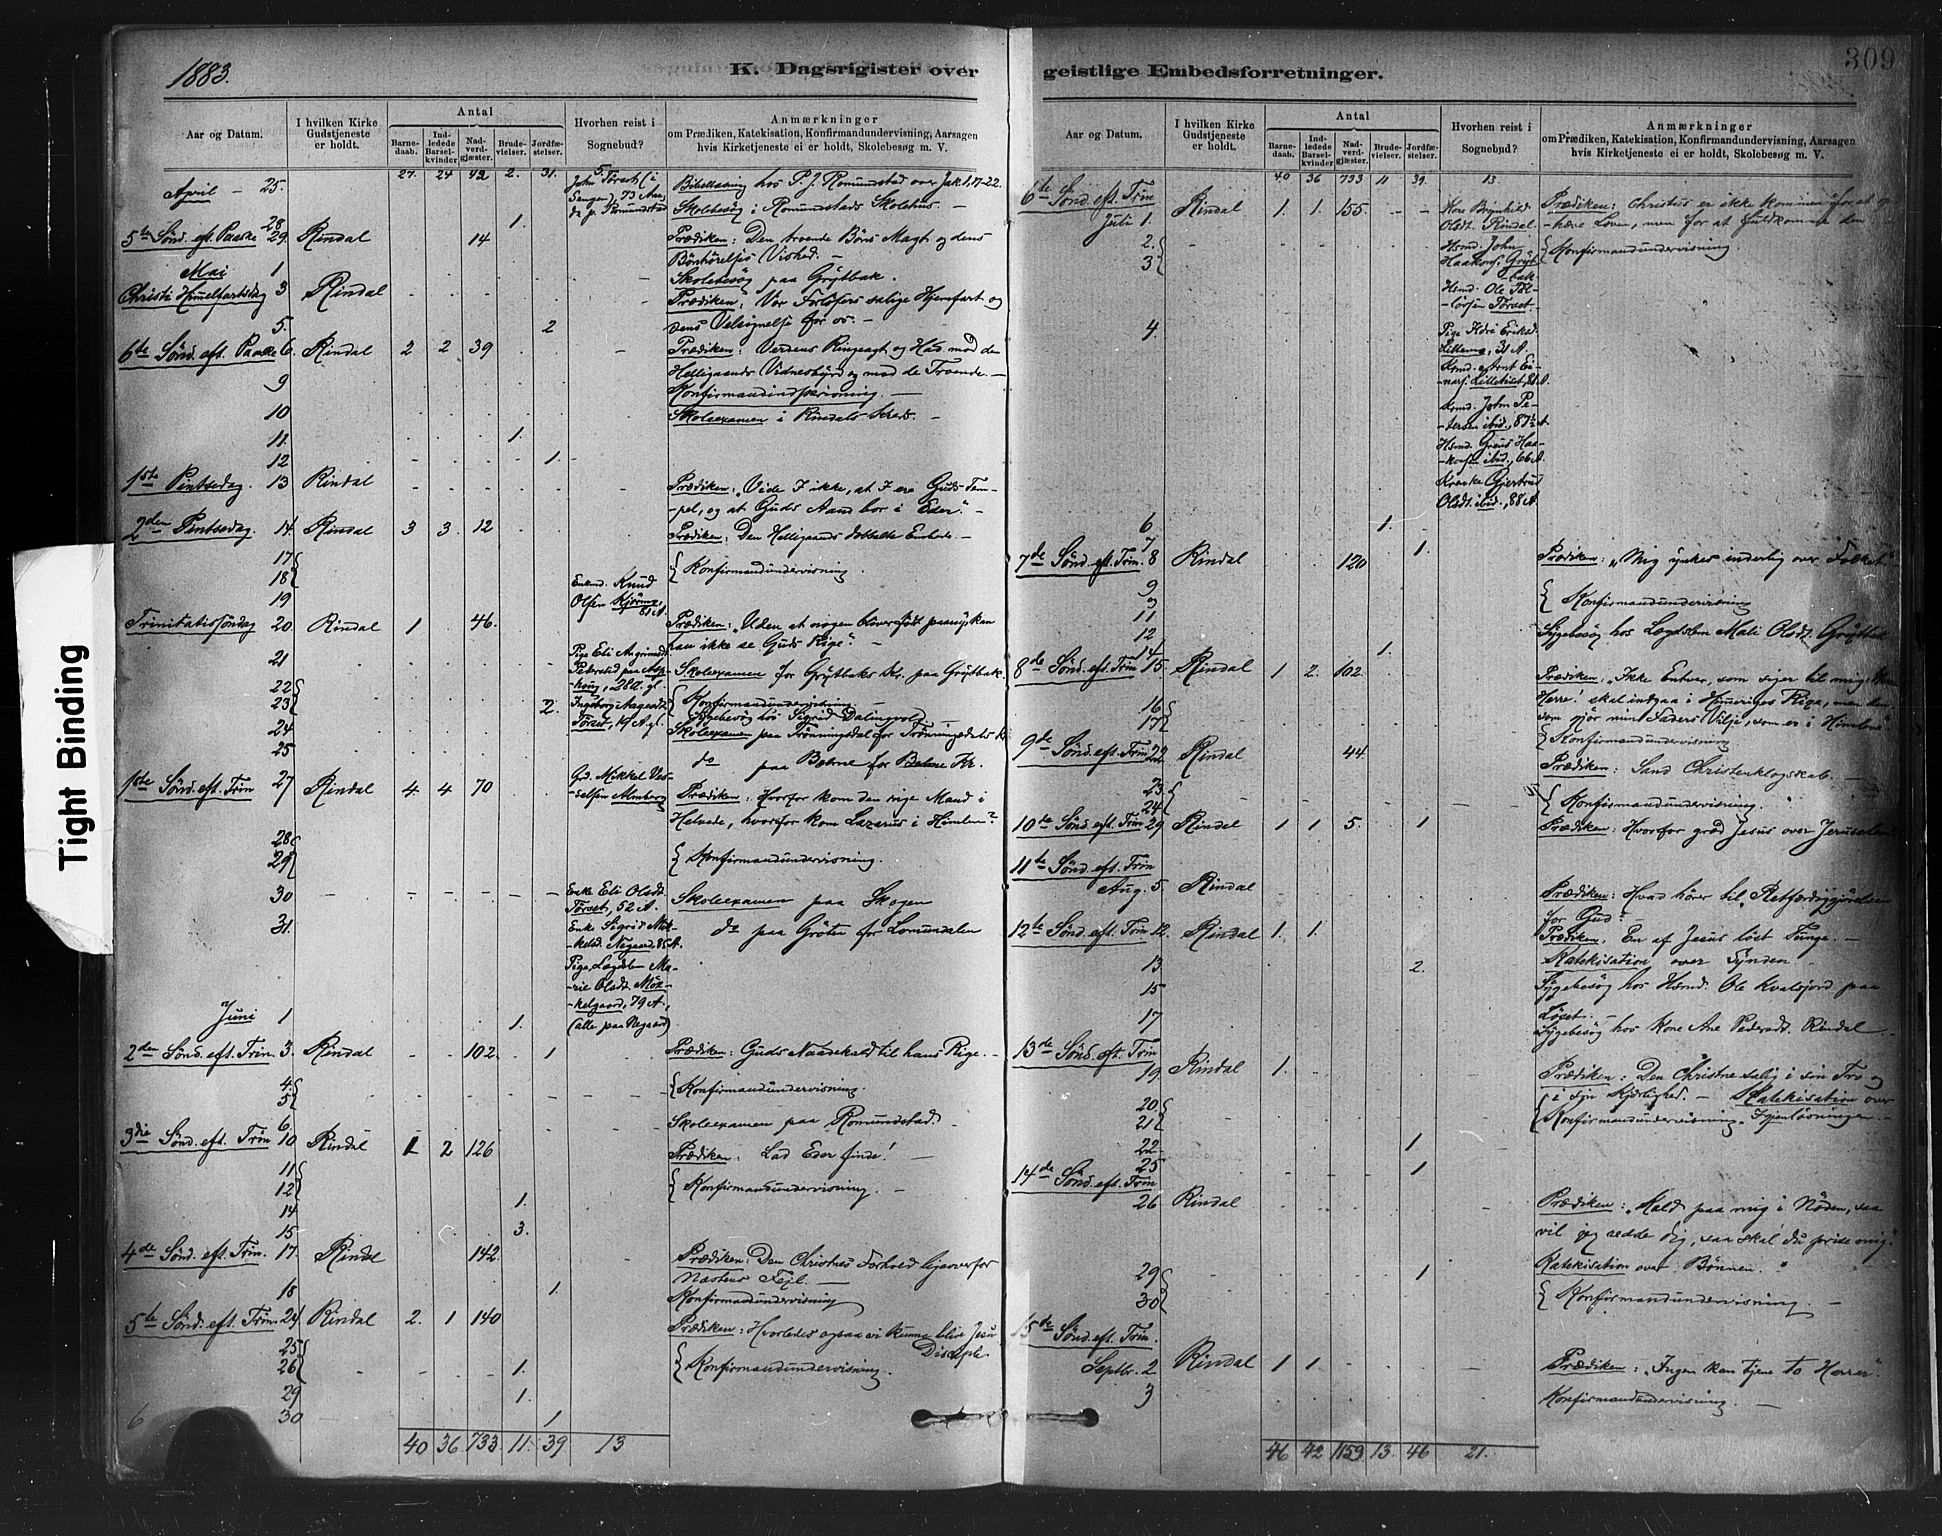 1883.
K. Dagsrigister over
geistlige Embedsforretninger.
309
Tight Binding
Aar og Datum.
I hvilken Kirke Gudstjeneste er holdt.
Antal
Barnedaab.
Indledede Barselkvinder
Nadverdgjæster.
Brudevielser.
Jordfæstelser.
Hvorhen reist i Sognebud?
Anmærkninger
om Prædiken, Katekisation, Konfirmandundervisning, Aarsagen
hvis Kirketjeneste ei er holdt, Skolebesøg m. V.
27. 24 42 2. 31. 5.
April - 25. Bibellæsning hos P. J. Romundstad over Jak 1,17-22.
Skolebesøg i Romundstads Skolehus. -
28 1.
5te Sønd. eft. Paaske 29. Rindal 14 Prædiken: Den troende Bøns Magt og dens
Bønhørelses Vished. -
Mai 1 Skolebesøg paa Grytbak.
Christi Himmelfartsdag 3 Rindal Prædiken: Vor Frelsers salige Hjemfart og
dens Velsignelse for os. -
5. 2
6te Sønd. eft. Paaske 6. Rindal 2 2 39 Prædiken: Verdens Ringeagt og Had mod den
Helligaands Vidnesbyrd og mod de Troende. -
9 Konfirmandindskrivning. -
10 Skoleexamen i Rindals Kreds. -
11. 1.
12 1.
1ste Pintsedag. 13 Rindal Prædiken: "Vide I ikke, at I ere Guds Tem-
-pel, og at Guds Aand bor i Eder". -
2den Pintsedag. 14. Rindal 3 3. 12 Prædiken: Den Helligaands dobbelte Embede. -
17 Konfirmandundervisning.
18
19 Enkmd. Knud Olsen Kjørmo, 81 A.
Trinitatissøndag 20. Rindal 1 46. Prædiken: "Uden at nogen bliver født paany, kan
han ikke se Guds Rige". -
21 Skoleexamen for Grytbaks Kr. paa Grytbak.
22 Konfirmandundervisning. -
23 2. Sygebesøg hos Sigrid Dalingvold
24 Skoleexamen paa Trønningsdal for Trønningsdals Kr.
25 do paa Bolme for Bolme Kr.
1ste Sønd. eft. Trin 27 Rindal 4. 4 70 Gd. Mikkel Ves-
-selsen Almberg Prædiken: Hvorfor kom den rige Mand i
Helvede, hvorfor kom Lazarus i Himlen?
28
29 Konfirmandundervisning.
30 Enke Eli Olsdt. Tørset, 52 A. Skoleexamen paa Skogen
31. Enke Sigrid Mik-
-kelsd. Negaard, 85 A. do paa Grøten for Lomundalen
Pige, Lægdslem Ma-
-rie Olsdt. Møk-
-kelgaard, 79 A.,
(alle paa Negaard)
Juni 1 1.
2den Sønd. eft. Trin. 3. Rindal 102. 1 Prædiken: Guds Naadekald til hans Rige. -
4.
5 Konfirmandundervisning.
6. Skoleexamen paa Romundstad.
3die Sønd. eft. Trin 10 Rindal 1 2 126 Prædiken: Lad Eder finde! -
11
12 Konfirmandundervisning. -
14 1.
15 3.
4de Sønd. eft. Trin. 17. Rindal 142. Prædiken: Den Christnes Forhold ligeoverfor
Næstens Fejl. -
18 1. Konfirmandundervisning
5te Sønd. eft. Trin. 24 Rindal 2. 1 140 Prædiken: Hvorledes ogsaa vi kunne blive Jesu
Disciple.
25
26 1. Konfirmandundervisning.
29 1.
30 1
6
40 36 733 11. 39 13
Aar og Datum.
I hvilken Kirke Gudstjeneste er holdt.
Antal
Barnedaab.
Indledede Barselkvinder
Nadverdgjæster.
Brudevielser.
Jordfæstelser.
Hvorhen reist i Sognebud?
Anmærkninger
om Prædiken, Katekisation, Konfirmandundervisning, Aarsagen
hvis Kirketjeneste ei er holdt, Skolebesøg m. V.
40 36 733 11 39. 13.
6te Sønd. eft. Trin
Juli 1. Rindal 1. 1. 155. Kone Brynhild
Olsdt. Rindal Prædiken: Christus er ikke kommen for at op-
-hæve Loven, men for at fuldkomme den
2.
3 Hsmd. John
Haakons. Gryt-
-bak Konfirmandundervisning
Hsmd. Ole
Tørset.
4. Pige
31 A.
Lilleløset
Hsmd. John Pe-
-tersen ibid., 87½ A.
ibid., 66 A.
Gjertrud
Olsdt. ibid., 88 A.
6 1.
7 1.
7de Sønd. eft. Trin. 8 Rindal 120 Prædiken: "Mig ynkes inderlig over Folket"
9
9 Konfirmandundervisning
11
12 Sygebesøg hos Lægdslem Mali Olsdt. Grytbak
14 1.
8de Sønd. eft. Trin 15. Rindal 1 2. 102. Prædiken: Ikke Enhver, som siger til mig: Herre
Herre! skal indgaa i Himmeriges Rige, men den,
som gjør min Faders Vilje, som er i Himlene"
16
17 Konfirmandundervisning
9de Sønd. eft. Trin 22 Rindal 44. Prædiken: Sand Christenklogskab. -
23
24 Konfirmandundervisning.
10de Sønd. eft. Trin 29 Rindal 1 1 5. 1 Prædiken: Hvorfor græd Jesus over Jerusalem
11te Sønd. eft. Trin
Aug. 5. Rindal Prædiken: Hvad hører til "Retfærdiggjørelsen
for Gud"? -
12te Sønd. eft. Trin 12. Rindal 1. 1. Prædiken: En af Jesus løst Tunge. -
Katekisation over Synden
13 2.
15 Sygebesøg hos Hsmd. Ole Kvalsjord paa
Løset. -
17 Sygebesøg hos Kone Ane Pedersdt. Rindal
13de Sønd. eft. Trin
19. Rindal 1. Prædiken: Den Christne salig i sin Tro og
i sin Kjærlighed. - Katekisation over
20.
21 Konfirmandundervisning. Igjenløsningen. -
22 1
25 1
14de Sønd. eft. Trin
26 Rindal Prædiken: "Kald paa mig i Nøden, saa
vil jeg redde dig, saa skal du prise mig".
Katekisation over Bønnen.
29 1
30 Konfirmandundervisning. -
15de Sønd. eft. Trin.
Septbr. 2 Rindal 1 1 Prædiken: "Ingen kan tjene to Herrer".
3 Konfirmandundervisning. -
46 42 1159 13. 46 21.